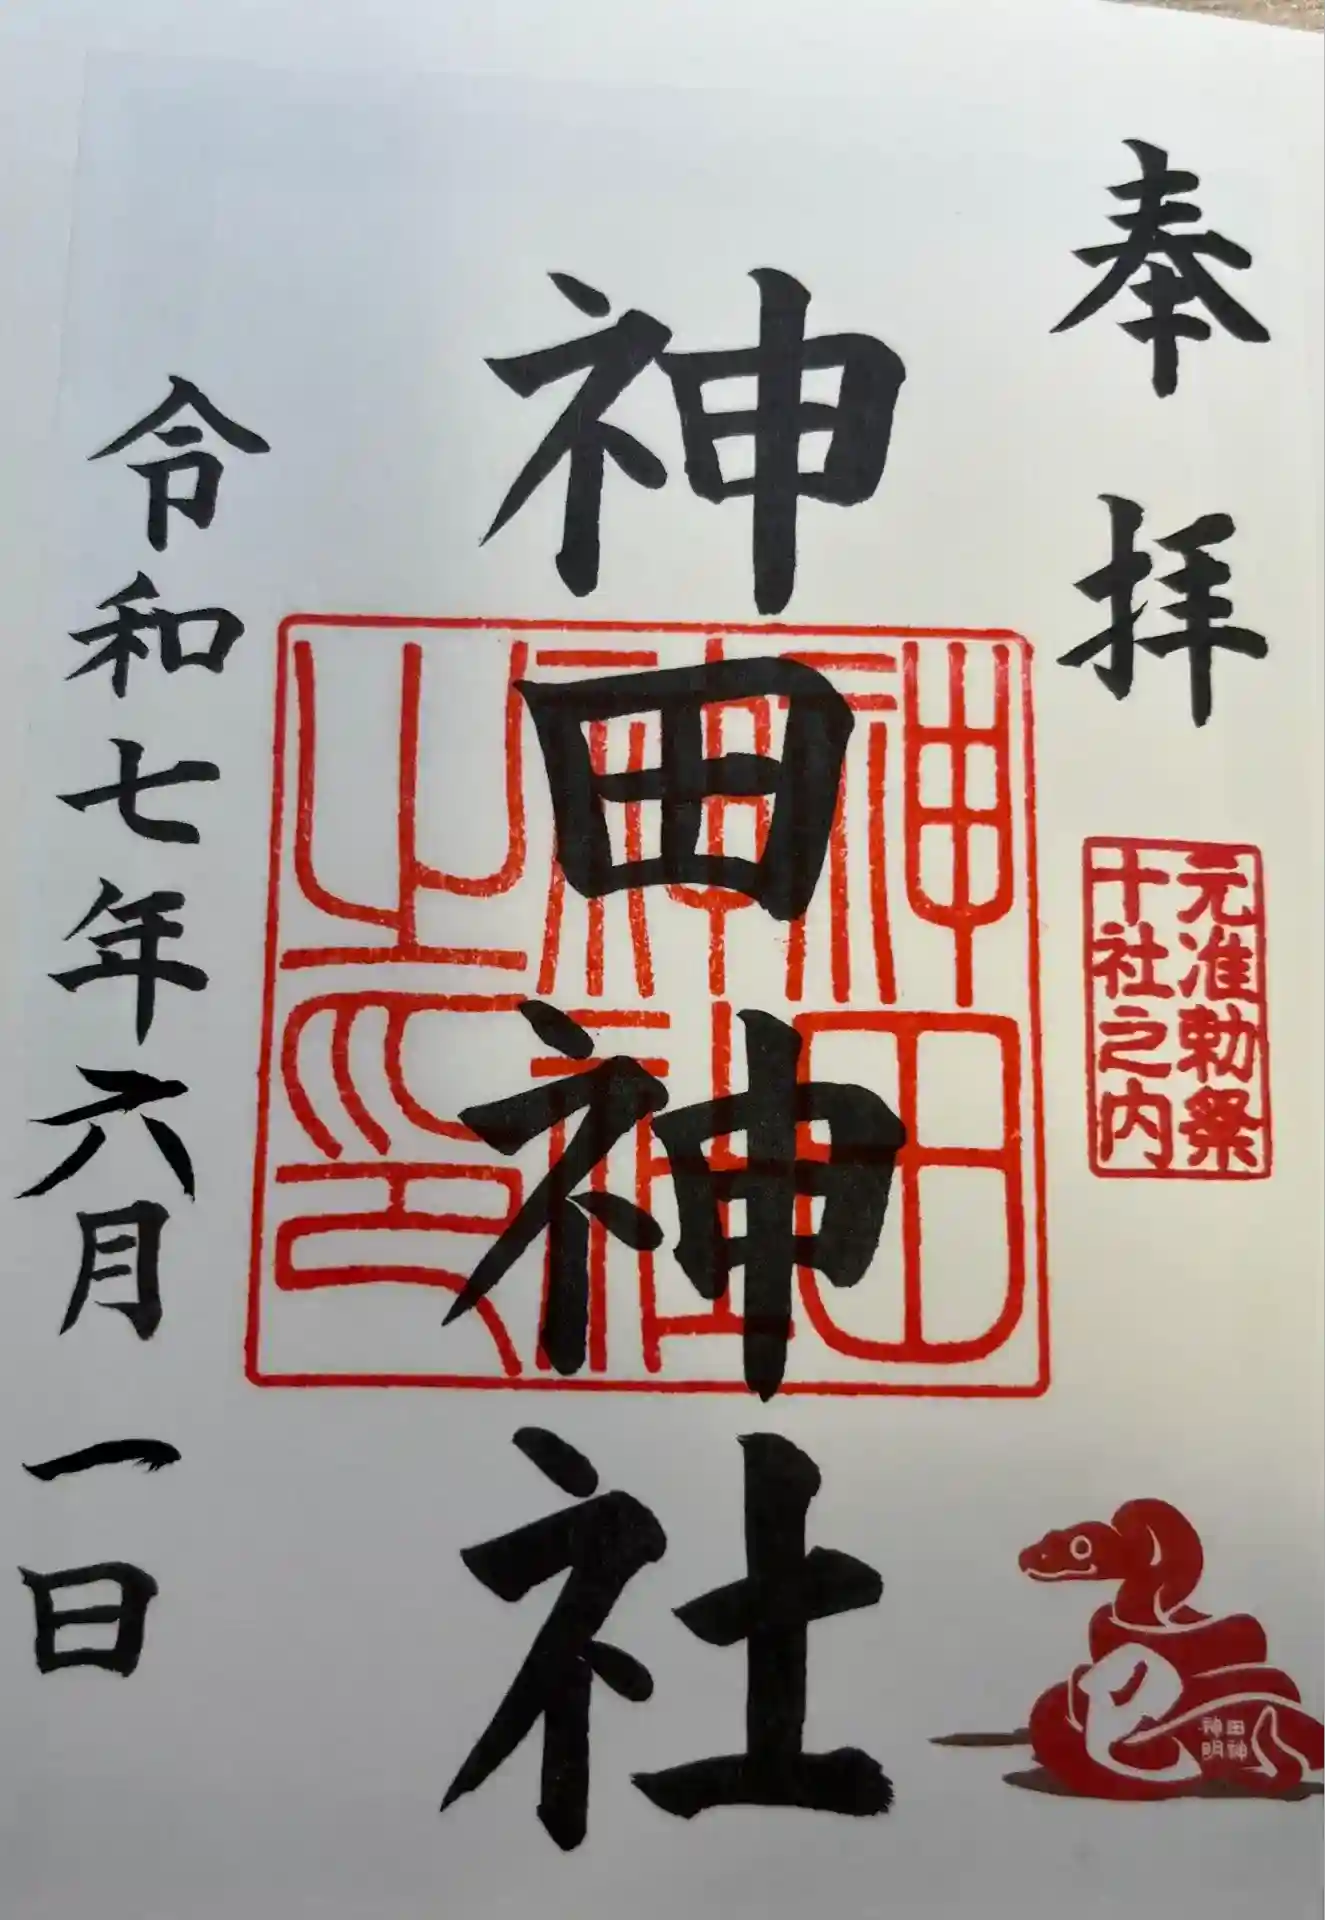 奉拝
元准勅祭
十社之内
巳
神田神社
神田
神社
之印
令和七年六月一日